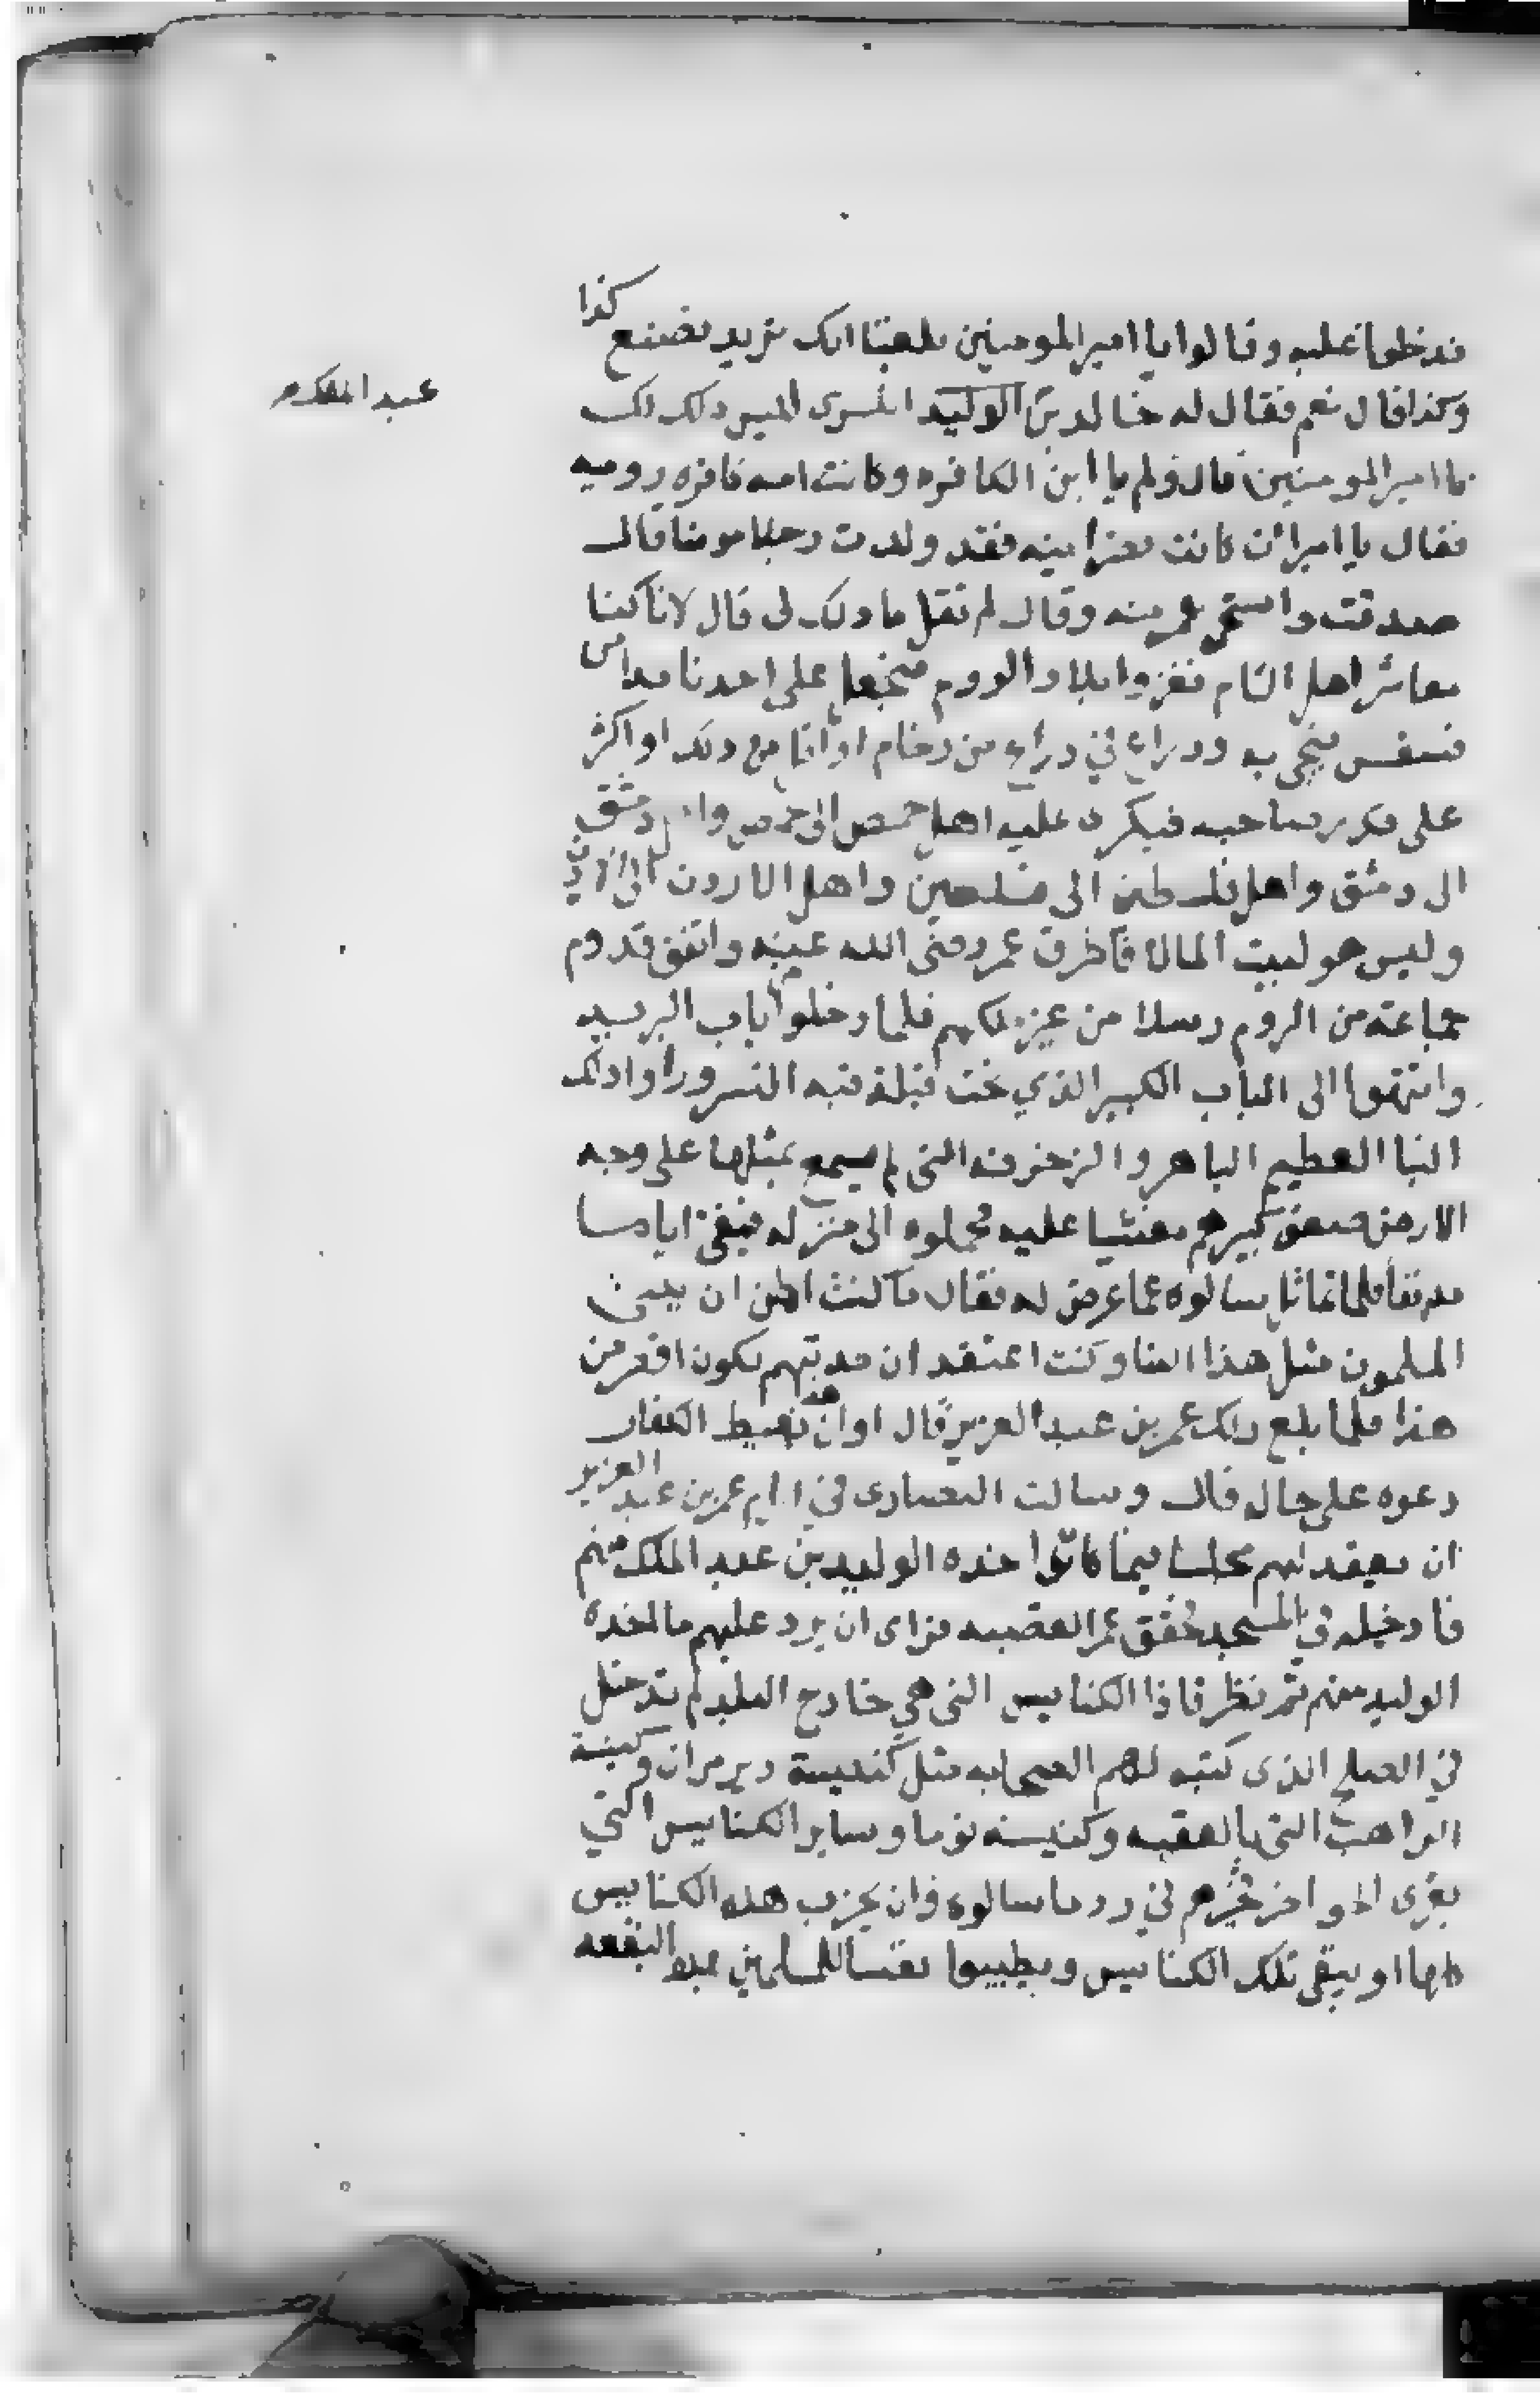 فدخلوا عليه وقالوا يا امير المومنين بلغنا انك تريد تصنع كذا
وكذا قال نعم فقال له خالد بن الوليد القسرى ليس ذلك لك
يا امير المومنين قال ولم يا ابن الكافره وكانت امه كافره روميه
فقال يا امير ان كانت فقد ولدت رجلا مومنا قال
صدقت واستحى عمر منه وقال لم تقل ما ذلك لى قال لانا كنا
معاشر اهل الشام نغزوا بلاد الروم على احدنا مدا من
يجى به وذراع في ذراع من رخام او اقل من ذلك او اكثر
على قدر صاحبه فيكرى عليه اهل حمص الى حمص واهل دمشق
الى دمشق واهل فلسطين الى فلسطين واهل الاردن الى الاردن
وليس هو لبيت المال فاطرق عمر رضى الله عنه واتفق قدوم
جماعة من الروم رسلا من عند ملكهم فلما دخلوا باب البريد
وانتهوا الى الباب الكبير الذي تحت قبلة قبه النسر وراوا ذلك
البنا العظيم الباهر والزخرفه التى لم يسمع بمثلها على وجه
الارض صعق كبيرهم مغشيا عليه فحملوه الى منزله فبقى اياما
مدنفا فلما تماثل سالوه عما عرض له فقال ما كنت اظن ان يبنى
المسلمون مثل هذا البنا وكنت اعتقد ان مدتهم تكون اقصر من
هذا فلما بلغ ذلك عمر بن عبد العزيز قال اوان هذا يغيظ الكفار
دعوه على حاله قال وسالت النصارى في ايام عمر بن عبد العزيز
ان يعقد لهم مجلسا فيما كانوا اخذه الوليد بن عبد الملك منهم
فادخله في المسجد فحقق عمر القضيه فراى ان يرد عليهم ما اخذه
الوليد منهم ثم نظر فاذا الكنايس التى هي خارج البلد لم تدخل
في الصلح الذى كتبه لهم الصحابه مثل كنيسة دير مران وكنيسة
الراهب التى بالعقبه وكنيسه توما وساير الكنايس التي
بقرى الحواجز فخيرهم في رد ما سالوه وان يخرب هذه الكنايس
كلها او يبقى تلك الكنايس ويطيبوا نفسا للمسلمين بهذه البقعه
عبد الملك م